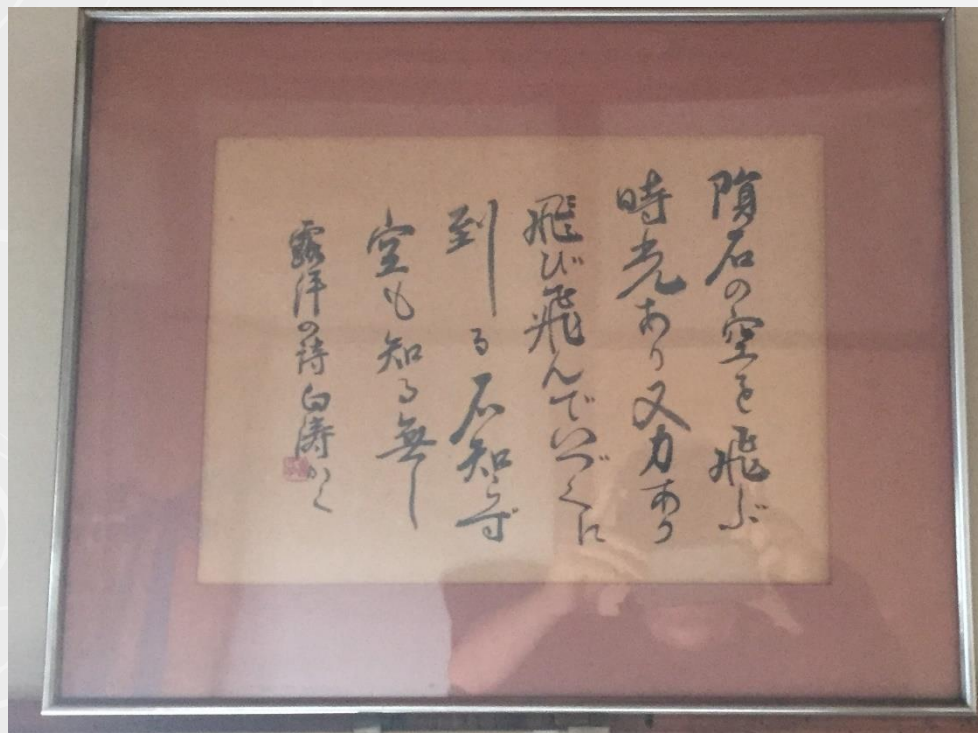 隕石の空を飛ぶ
時光あり又力あり
飛び飛んでいづくに
到る石知らず
空も知る無し
露洋の詩 白涛かく